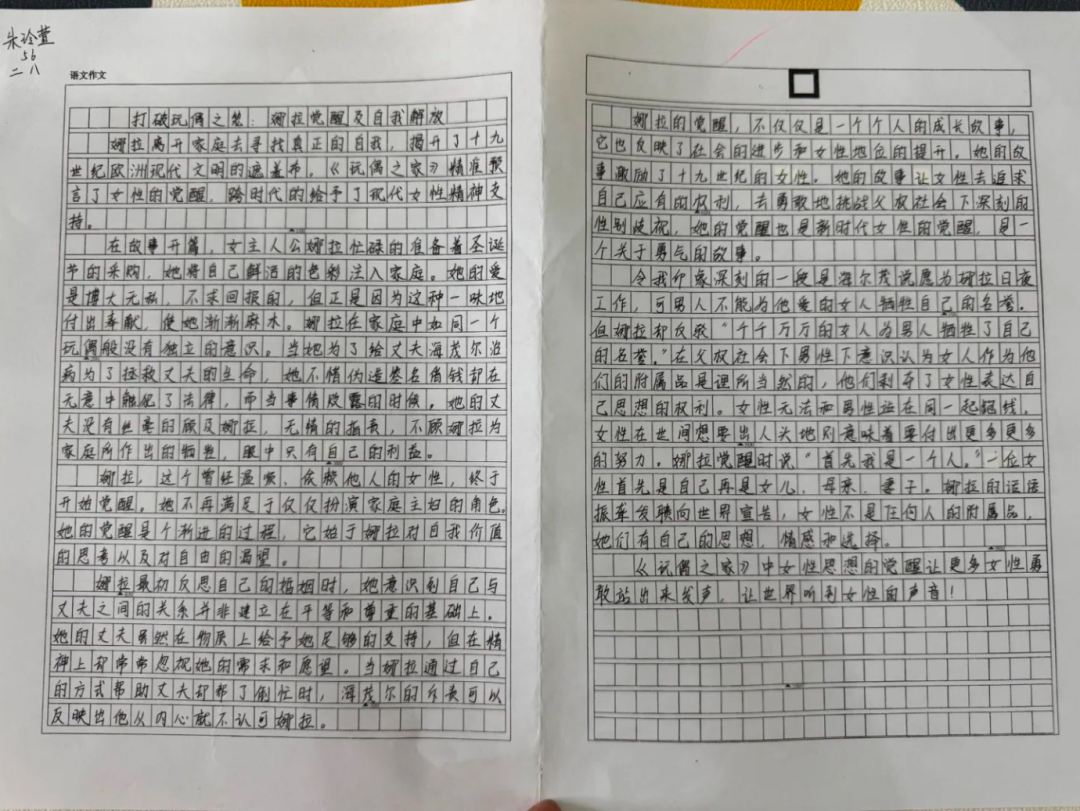 朱泠萱
56
二八
语文作文
打破玩偶之笼：娜拉觉醒及自我解放
娜拉离开家庭去寻找真正的自我，揭开了十九
世纪欧洲现代文明的遮羞布。《玩偶之家》精准预
言了女性的觉醒，跨时代的给予了现代女性精神支
持。
在故事开篇，女主人公娜拉忙碌的准备着圣诞
节的采购，她将自己鲜活的色彩注入家庭。她的爱
是博大无私，不求回报的，但正是因为这种一味地
付出奉献，使她渐渐麻木。娜拉在家庭中如同一个
玩偶般没有独立的意识。当她为了给丈夫海茂尔治
病为了拯救丈夫的生命，她不惜伪造签名借钱却在
无意中触犯了法律，而当事情败露的时候，她的丈
夫没有丝毫的顾及娜拉，无情的指责，不顾娜拉为
家庭所作出的牺牲，眼中只有自己的利益。
娜拉，这个曾经温顺、依赖他人的女性，终于
开始觉醒。她不再满足于仅仅扮演家庭主妇的角色。
她的觉醒是个渐进的过程，它始于娜拉对自我价值
的思考以及对自由的渴望。
娜拉最初反思自己的婚姻时，她意识到自己与
丈夫之间的关系并非建立在平等和尊重的基础上。
她的丈夫虽然在物质上给予她足够的支持，但在精
神上却常常忽视她的需求和愿望。当娜拉通过自己
的方式帮助丈夫却帮了倒忙时，海茂尔的斥责可以
反映出他从内心就不认可娜拉。
娜拉的觉醒，不仅仅是一个个人的成长故事，
它也反映了社会的进步和女性地位的提升。她的故
事激励了十九世纪的女性。她的故事让女性去追求
自己应有的权利，去勇敢地挑战父权社会下深刻的
性别歧视，她的觉醒也是新时代女性的觉醒，是一
个关于勇气的故事。
令我印象深刻的一段是海尔茂说愿为娜拉日夜
工作，可男人不能为他爱的女人牺牲自己的名誉。
但娜拉却反驳“千千万万的女人为男人牺牲了自己
的名誉。”在父权社会下男性下意识认为女人作为他
们的附属品是理所当然的，他们剥夺了女性表达自
己思想的权利。女性无法和男性站在同一起跑线，
女性在世间想要出人头地则意味着要付出更多更多
的努力。娜拉觉醒时说“首先我是一个人。”一位女
性首先是自己再是女儿、母亲、妻子。娜拉的话语
振聋发聩向世界宣告，女性不是任何人的附属品，
她们有自己的思想、情感和选择。
《玩偶之家》中女性思想的觉醒让更多女性勇
敢站出来发声，让世界听到女性的声音！